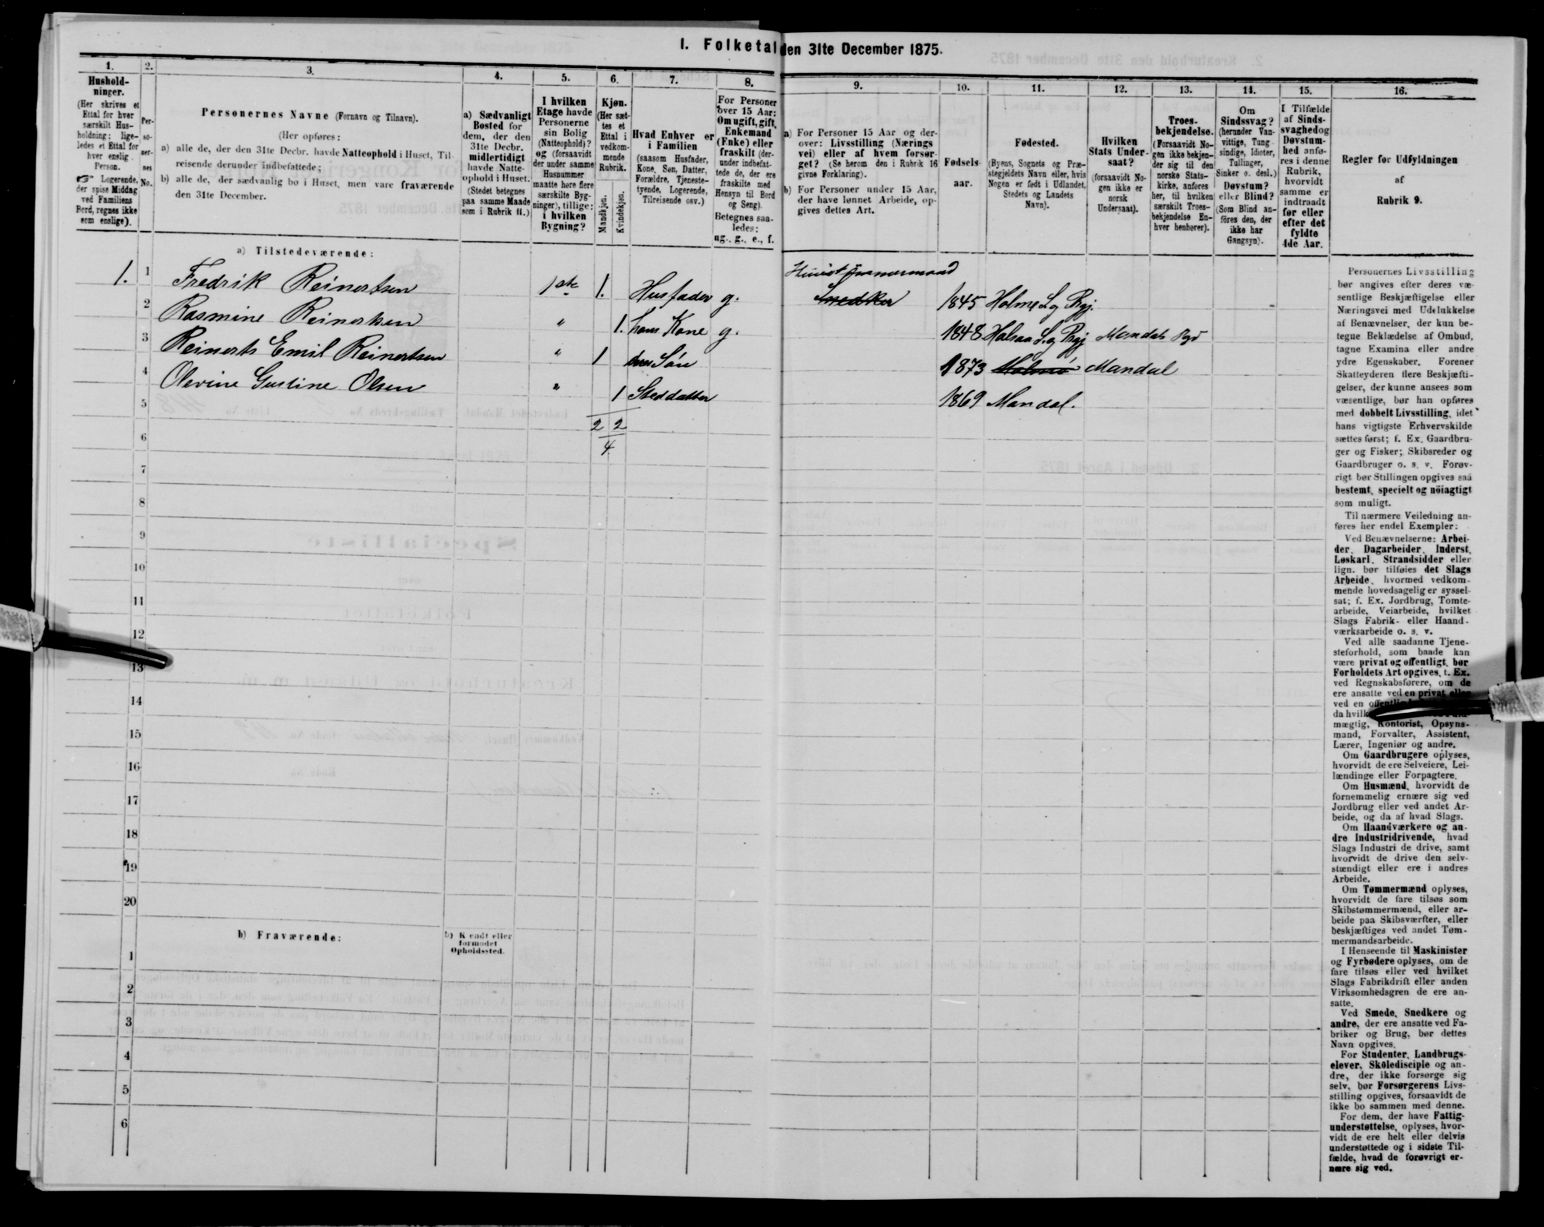 I. Folketal den 31te December 1875.
1.
Hushold-
ninger.
(Her skrives et
Ettal for hver
særskilt Hus-
holdning; lige-
ledes et Ettal for
hver enslig
Person.
☞ Logerende,
der spise Middag
ved Familiens
Bord, regnes ikke
som enslige).
2.
Per-
so-
ner-
nes
No.
3.
Personernes Navne (Fornavn og Tilnavn).
(Her opføres:
a) alle de, der den 31te Decbr. havde Natteophold i Huset, Til-
reisende derunder indbefattede;
b) alle de, der sædvanlig bo i Huset, men vare fraværende
den 31te December.
4.
a) Sædvanligt
Bosted for
dem, der den
31te Decbr.
midlertidigt
havde Natte-
ophold i Huset.
(Stedet betegnes
paa samme Maade
som i Rubrik 11.)
5.
I hvilken
Etage havde
Personerne
sin Bolig
(Natteophold)?
og (forsaavidt
der under samme
Husnummer
maatte høre flere
særskilte Byg-
ninger), tillige:
i hvilken
Bygning?
6.
Kjøn.
(Her sæt-
tes et
Ettal i
vedkom-
mende
Rubrik.
Mandkjøn.
Kvindekjøn.
7.
Hvad Enhver er
i Familien
(saasom Husfader,
Kone, Søn, Datter,
Forældre, Tjeneste-
tyende, Logerende,
Tilreisende osv.)
8.
For Personer
over 15 Aar:
Om ugift, gift,
Enkemand
(Enke) eller
fraskilt (der-
under indbefat-
tede de, der ere
fraskilte med
Hensyn til Bord
og Seng).
Betegnes saa-
ledes:
ug., g., e., f.
9.
a) For Personer 15 Aar og der-
over: Livsstilling (Nærings
vei) eller af hvem forsør-
get? (Se herom den i Rubrik 16
givne Forklaring).
b) For Personer under 15 Aar,
der have lønnet Arbeide, op-
gives dettes Art.
10.
Fødsels-
aar.
11.
Fødested.
(Byens, Sognets og Præ-
stegjeldets Navn eller, hvis
Nogen er født i Udlandet,
Stedets og Landets
Navn).
12.
Hvilken
Stats Under-
saat?
(forsaavidt No-
gen ikke er
norsk
Undersaat).
13.
Troes-
bekjendelse.
(Forsaavidt No-
gen ikke bekjen-
der sig til den
norske Stats-
kirke, anføres
her, til hvilken
særskilt Troes-
bekjendelse En-
hver henhører).
14.
Om
Sindssvag?
(herunder Van-
vittige, Tung-
sindige, Idioter,
Tullinger,
Sinker o. desl.)
Døvstum?
eller Blind?
(Som Blind an-
føres den, der
ikke har
Gangsyn).
15.
I Tilfælde
af Sinds-
svaghed og
Døvstum-
hed anfø-
res i denne
Rubrik,
hvorvidt
samme er
indtraadt
før eller
efter det
fyldte
4de Aar.
16.
Regler for Udfyldningen
af
Rubrik 9.
a) Tilstedeværende:
1. 1 Fredrik Reinertsen 1ste 1. Husfader g. Tømmermand Snedker 1845 Holme S. og Pgj.
2 Rasmine Reinertsen " 1. hans Kone g. 1848 Halsaa S. og Pgj Mandal
3 Reinerts Emil Reinertsen " 1 Søn 1873 Mandal
4 Olevine Gustine Olsen " 1 Steddatter 1869 Mandal.
5
2 2
6
4
7
8
9
10
11
12
13
14
15
16
17
18
19
20
b) Fraværende:
b) Kjendt eller
formodet
Opholdssted.
1
2
3
4
5
6
Personernes Livsstilling
bør angives efter deres væ-
sentlige Beskjæftigelse eller
Næringsvei med Udelukkelse
af Benævnelser, der kun be-
tegne Beklædelse af Ombud,
tagne Examina eller andre
ydre Egenskaber. Forener
Skatteyderen flere Beskjæfti-
gelser, der kunne ansees som
væsentlige, bør han opføres
med dobbelt Livsstilling, idet
hans vigtigste Erhvervskilde
sættes først; f. Ex. Gaardbru-
ger og Fisker; Skibsreder og
Gaardbruger o. s. v. Forøv-
rigt bør Stillingen opgives saa
bestemt, specielt og nöiagtigt
som muligt.
Til nærmere Veiledning an-
føres her endel Exempler:
Ved Benævnelserne: Arbei-
der, Dagarbeider, Inderst,
Løskarl, Strandsidder eller
lign. bør tilføies det Slags
Arbeide, hvormed vedkom-
mende hovedsagelig er syssel-
sat; f. Ex. Jordbrug, Tomte-
arbeide, Veiarbeide, hvilket
Slags Fabrik- eller Haand-
værksarbeide o. s. v.
Ved alle saadanne Tjene-
steforhold, som baade kan
være privat og offentligt, bør
Forholdets Art opgives, f. Ex.
ved Regnskabsførere, om de
ere ansatte ved en privat eller
ved en
da hvilk
mægtig, Kontorist, Opsyns-
mand, Forvalter, Assistent,
Lærer, Ingeniør og andre.
Om Gaardbrugere oplyses,
hvorvidt de ere Selveiere, Lei-
lændinge eller Forpagtere.
Om Husmænd, hvorvidt de
fornemmelig ernære sig ved
Jordbrug eller ved andet Ar-
beide, og da af hvad Slags.
Om Haandværkere og an-
dre Industridrivende, hvad
Slags Industri de drive, samt
hvorvidt de drive den selv-
stændigt eller ere i andres
Arbeide.
Om Tømmermænd oplyses,
hvorvidt de fare tilsøs som
Skibstømmermænd, eller ar-
beide paa Skibsværfter, eller
beskjæftiges ved andet Tøm-
mermandsarbeide.
I Henseende til Maskinister
og Fyrbødere oplyses, om de
fare tilsøs eller ved hvilket
Slags Fabrikdrift eller anden
Virksomhedsgren de ere an-
satte.
Ved Smede, Snedkere og
andre, der ere ansatte ved Fa-
briker og Brug, bør dettes
Navn opgives.
For Studenter, Landbrugs-
elever, Skoledisciple og an-
dre, der ikke forsørge sig
selv, bør Forsørgerens Livs-
stilling opgives, forsaavidt de
ikke bo sammen med denne.
For dem, der have Fattig-
understøttelse, oplyses, hvor-
vidt de ere helt eller delvis
understøttede og i sidste Til-
fælde, hvad de forøvrigt er-
nære sig ved.